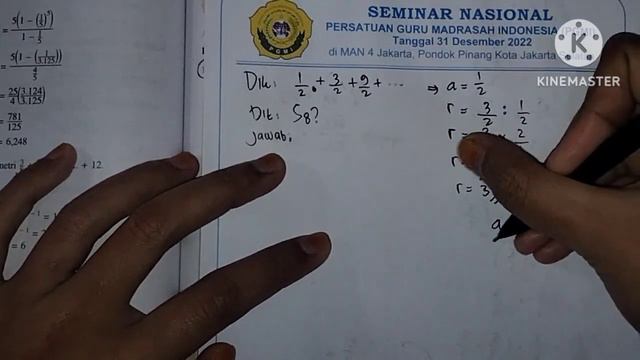 = 5(1 − (1/5)^5)
1 − 1/5
= 5(1 − (1/3.125))
4/5
= 25(3.124)
4(3.125)
= 781
125
= 6,248
metri
+ 12.
= 6
SEMINAR NASIONAL
PERSATUAN GURU MADRASAH INDONESIA
Tanggal 31 Desember 2022
di MAN 4 Jakarta, Pondok Pinang Kota Jakarta
PGMI
KINEMASTER
Dik: 1/2 + 3/2 + 9/2 + ... ⇒ a = 1/2
r = 3/2 : 1/2
Dit: S8?
r = × 2
Jawab:
r = 3
a